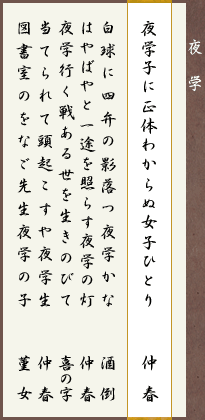 夜学
夜学子に正体わからぬ女子ひとり 仲春
白球に四弁の影落つ夜学かな 酒倒
はやばやと一途を照らす夜学の灯 仲春
夜学行く戦ある世を生きのびて 喜の字
当てられて頭起こすや夜学生 仲春
図書室のをなご先生夜学の子 菫女